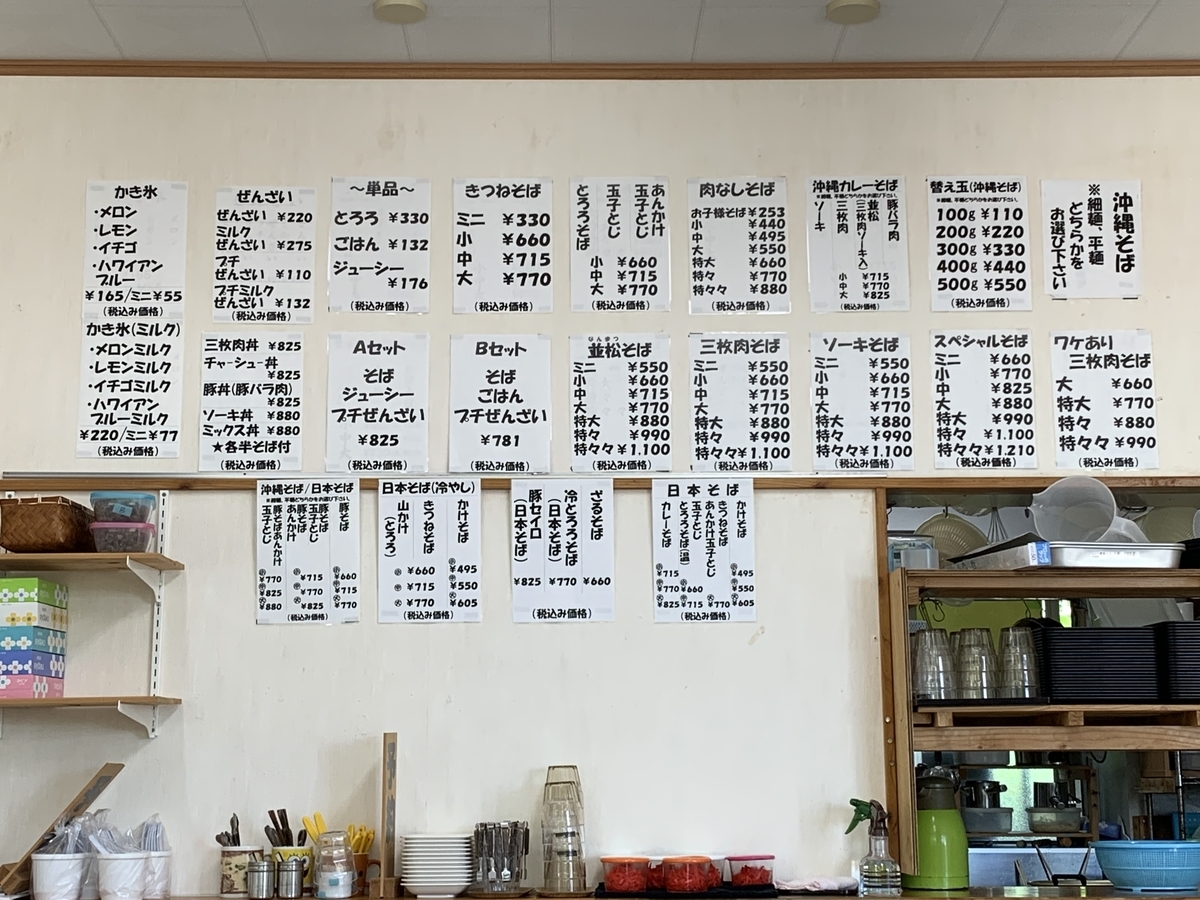 かき氷
・メロン
・レモン
・イチゴ
・ハワイアン
ブルー
¥165/ミニ¥55
(税込み価格)
ぜんざい
ぜんざい ¥220
ミルク
ぜんざい ¥275
プチ
ぜんざい ¥110
プチミルク
ぜんざい ¥132
(税込み価格)
～単品～
とろろ ¥330
ごはん ¥132
ジューシー
¥176
(税込み価格)
きつねそば
ミニ ¥330
小 ¥660
中 ¥715
大 ¥770
(税込み価格)
あんかけ
玉子とじ
玉子とじ
とろろそば
小 ¥660
中 ¥715
大 ¥770
(税込み価格)
肉なしそば
お子様そば¥253
小 ¥440
中 ¥495
大 ¥550
特大 ¥660
特々 ¥770
特々々 ¥880
(税込み価格)
沖縄カレーそば
※細麺、平麺どちらかをお選び下さい。
豚バラ肉
並松
(三枚肉ソーキ入)
三枚肉
ソーキ
小 ¥715
中 ¥715
大 ¥825
(税込み価格)
替え玉(沖縄そば)
※細麺、平麺どちらかをお選び下さい。
100g ¥110
200g ¥220
300g ¥330
400g ¥440
500g ¥550
(税込み価格)
沖縄そば
※細麺、平麺
どちらかを
お選び下さい
かき氷(ミルク)
・メロンミルク
・レモンミルク
・イチゴミルク
・ハワイアン
ブルーミルク
¥220/ミニ¥77
(税込み価格)
三枚肉丼 ¥825
チャーシュー丼
¥825
豚丼(豚バラ肉)
¥825
ソーキ丼 ¥880
ミックス丼 ¥880
★各半そば付
(税込み価格)
Aセット
そば
ジューシー
プチぜんざい
¥825
(税込み価格)
Bセット
そば
ごはん
プチぜんざい
¥781
(税込み価格)
なんまつ
並松そば
ミニ ¥550
小 ¥660
中 ¥715
大 ¥770
特大 ¥880
特々 ¥990
特々々¥1,100
(税込み価格)
三枚肉そば
ミニ ¥550
小 ¥660
中 ¥715
大 ¥770
特大 ¥880
特々 ¥990
特々々¥1,100
(税込み価格)
ソーキそば
ミニ ¥550
小 ¥660
中 ¥715
大 ¥770
特大 ¥880
特々 ¥990
特々々¥1,100
(税込み価格)
スペシャルそば
ミニ ¥660
小 ¥770
中 ¥825
大 ¥880
特大 ¥990
特々 ¥1,100
特々々¥1,210
(税込み価格)
ワケあり
三枚肉そば
大 ¥660
特大 ¥770
特々 ¥880
特々々 ¥990
(税込み価格)
沖縄そば/日本そば
※細麺、平麺どちらかをお選び下さい。
豚そば
豚そば
玉子とじ
豚そば
あんかけ
豚そばあんかけ
玉子とじ
小 ¥770 小 ¥715 小 ¥660
中 ¥825 中 ¥770 中 ¥715
大 ¥880 大 ¥825 大 ¥770
(税込み価格)
日本そば(冷やし)
かけそば
きつねそば
山かけ
(とろろ)
小 ¥660 小 ¥495
中 ¥715 中 ¥550
大 ¥770 大 ¥605
(税込み価格)
ざるそば
冷とろろそば
(日本そば)
豚セイロ
(日本そば)
¥825 ¥770 ¥660
(税込み価格)
日本そば
かけそば
きつねそば
あんかけ玉子とじ
玉子とじ
とろろそば(温)
カレーそば
小 ¥715 小 ¥495
中 ¥770 小 ¥660 中 ¥550
大 ¥825 中 ¥715 大 ¥770 大 ¥605
(税込み価格)